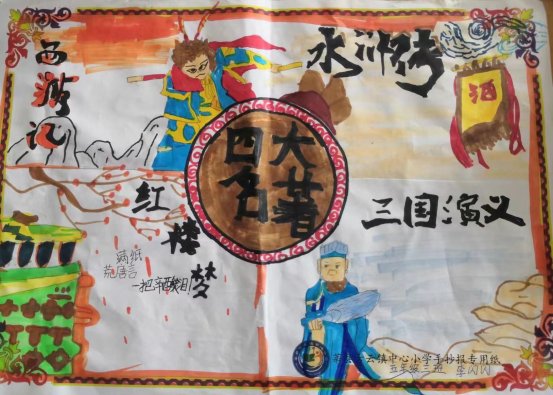 西游记
水浒传
酒
四大
名著
红楼梦
满纸
荒唐言
一把辛酸泪
三国演义
云镇中心小学手抄报专用纸
五年级三班